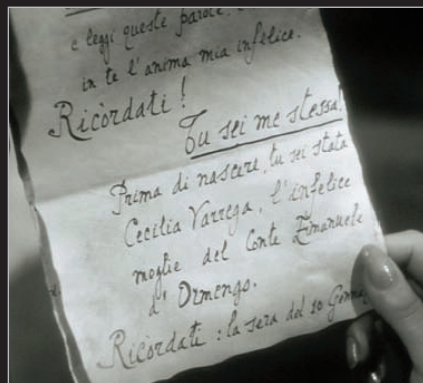 e leggi queste parole,
in te l'anima mia infelice.
Ricordati!
Tu sei me stessa!
Prima di nascere, tu sei stata
Cecilia Varrega, l'infelice
moglie del Conte Emanuele
d'Ormengo.
Ricordati: la sera del 10